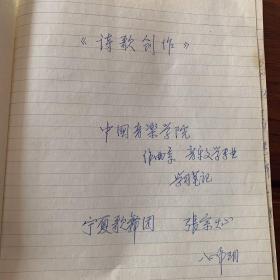 《诗歌创作》
中国音乐学院
作曲系 音乐文学专业
学习笔记
宁夏歌舞团 张宗
八